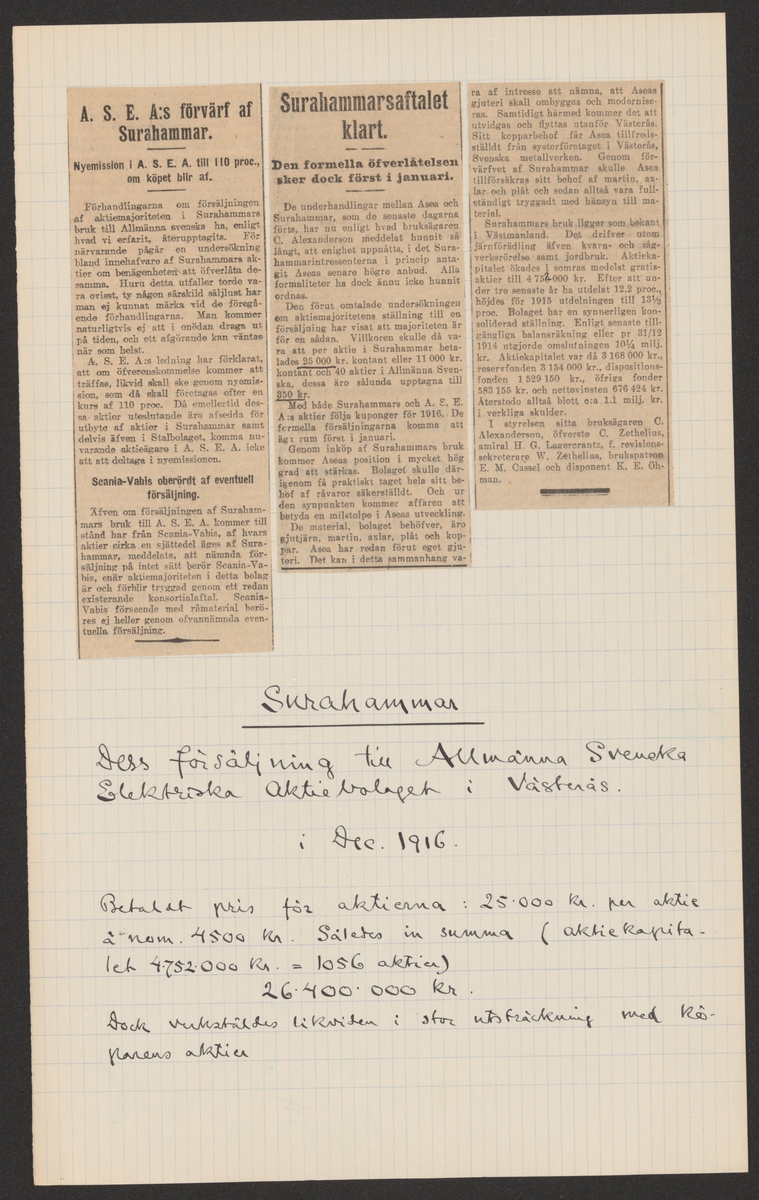 A. S. E. A:s förvärf af
Surahammar.
Nyemission i A. S. E. A. till 110 proc.,
om köpet blir af.
Förhandlingarna om försäljningen
af aktiemajoriteten i Surahammars
bruk till Allmänna svenska ha, enligt
hvad vi erfarit, återupptagits. För
närvarande pågår en undersökning
bland innehafvare af Surahammars ak-
tier om benägenheten att öfverlåta de-
samma. Huru detta utfaller torde va-
ra ovisst, ty någon särskild säljlust har
man ej kunnat märka vid de föregå-
ende förhandlingarna. Man kommer
naturligtvis ej att i onödan draga ut
på tiden, och ett afgörande kan väntas
när som helst.
A. S. E. A:s ledning har förklarat,
att om öfverenskommelse kommer att
träffas, likvid skall ske genom nyemis-
sion, som då skall företagas efter en
kurs af 110 proc. Då emellertid des-
sa aktier uteslutande äro afsedda för
utbyte af aktier i Surahammar samt
delvis äfven i Stalbolaget, komma nu-
varande aktieägare i A. S. E. A. icke
att att deltaga i nyemissionen.
Scania-Vabis oberördt af eventuell
försäljning.
Äfven om försäljningen af Suraham-
mars bruk till A. S. E. A. kommer till
stånd har från Scania-Vabis, af hvars
aktier cirka en sjättedel äges af Sura-
hammar, meddelats, att nämnda för-
säljning på intet sätt berör Scania-Va-
bis, enär aktiemajoriteten i detta bolag
är och förblir tryggad genom ett redan
existerande konsortialaftal. Scania-
Vabis förseende med råmaterial berö-
res ej heller genom ofvannämnda even-
tuella försäljning.
Surahammarsaftalet
klart.
Den formella öfverlåtelsen
sker dock först i januari.
De underhandlingar mellan Asea och
Surahammar, som de senaste dagarna
förts, har nu enligt hvad bruksägaren
C. Alexanderson meddelat hunnit så
långt, att enighet uppnåtts, i det Sura-
hammarintressenterna i princip anta-
git Aseas senare högre anbud. Alla
formaliteter ha dock ännu icke hunnit
ordnas.
Den förut omtalade undersökningen
om aktiemajoritetens ställning till en
försäljning har visat att majoriteten är
för en sådan. Villkoren skulle då va-
ra att per aktie i Surahammar beta-
lades 25 000 kr. kontant eller 11 000 kr.
kontant och 40 aktier i Allmänna Sven-
ska, dessa äro sålunda upptagna till
350 kr.
Med både Surahammars och A. S. E.
A:s aktier följa kuponger för 1916. De
formella försäljningarna komma att
äga rum först i januari.
Genom inköp af Surahammars bruk
kommer Aseas position i mycket hög
grad att stärkas. Bolaget skulle där-
igenom få praktiskt taget hela sitt be-
hof af råvaror säkerställdt. Och ur
den synpunkten kommer affären att
betyda en milstolpe i Aseas utveckling.
De material, bolaget behöfver, äro
gjutjärn, martin, axlar, plåt och kop-
par. Asea har redan förut eget gju-
teri. Det kan i detta sammanhang va-
ra af intresse att nämna, att Aseas
gjuteri skall ombyggas och modernise-
ras. Samtidigt härmed kommer det att
utvidgas och flyttas utanför Västerås.
Sitt kopparbehof får Asea tillfreds-
ställdt från systerföretaget i Västerås,
Svenska metallverken. Genom för-
värfvet af Surahammar skulle Asea
tillförsäkras sitt behof af martin, ax-
lar och plåt och sedan alltså vara full-
ständigt tryggadt med hänsyn till ma-
terial.
Surahammars bruk ligger som bekant
i Västmanland. Det drifver utom
järnförädling äfven kvarn- och såg-
verksrörelse samt jordbruk. Aktieka-
pitalet ökades i somras medelst gratis-
aktier till 4 752 000 kr. Efter att un-
der tre senaste år ha utdelat 12,2 proc.,
höjdes för 1915 utdelningen till 13⅓
proc. Bolaget har en synnerligen kon-
soliderad ställning. Enligt senaste till-
gängliga balansräkning eller pr 31/12
1914 utgjorde omslutningen 10¼ milj.
kr. Aktiekapitalet var då 3 168 000 kr.,
reservfonden 3 154 000 kr., dispositions-
fonden 1 529 150 kr., öfriga fonder
583 155 kr. och nettovinsten 676 424 kr.
Återstodo alltså blott c:a 1.1 milj. kr.
i verkliga skulder.
I styrelsen sitta bruksägaren C.
Alexanderson, öfverste C. Zethelius,
amiral H. G. Lagercrantz, f. revisions-
sekreterare W. Zethelius, brukspatron
E. M. Cassel och disponent K. E. Öh-
man.
Surahammar
Dess försäljning till Allmänna Svenska
Elektriska Aktiebolaget i Västerås.
i Dec. 1916.
Betaldt pris för aktierna : 25.000 kr. per aktie
à nom. 4500 kr. Således in summa ( aktiekapita-
let 4.752.000 kr. = 1056 aktier)
26.400.000 kr.
Dock verkställdes likviden i stor utsträckning med kö-
parens aktier